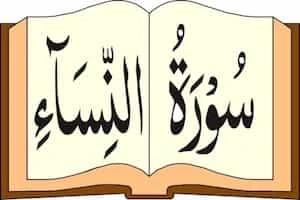 سُوْرَةُ النِّسَآءِ